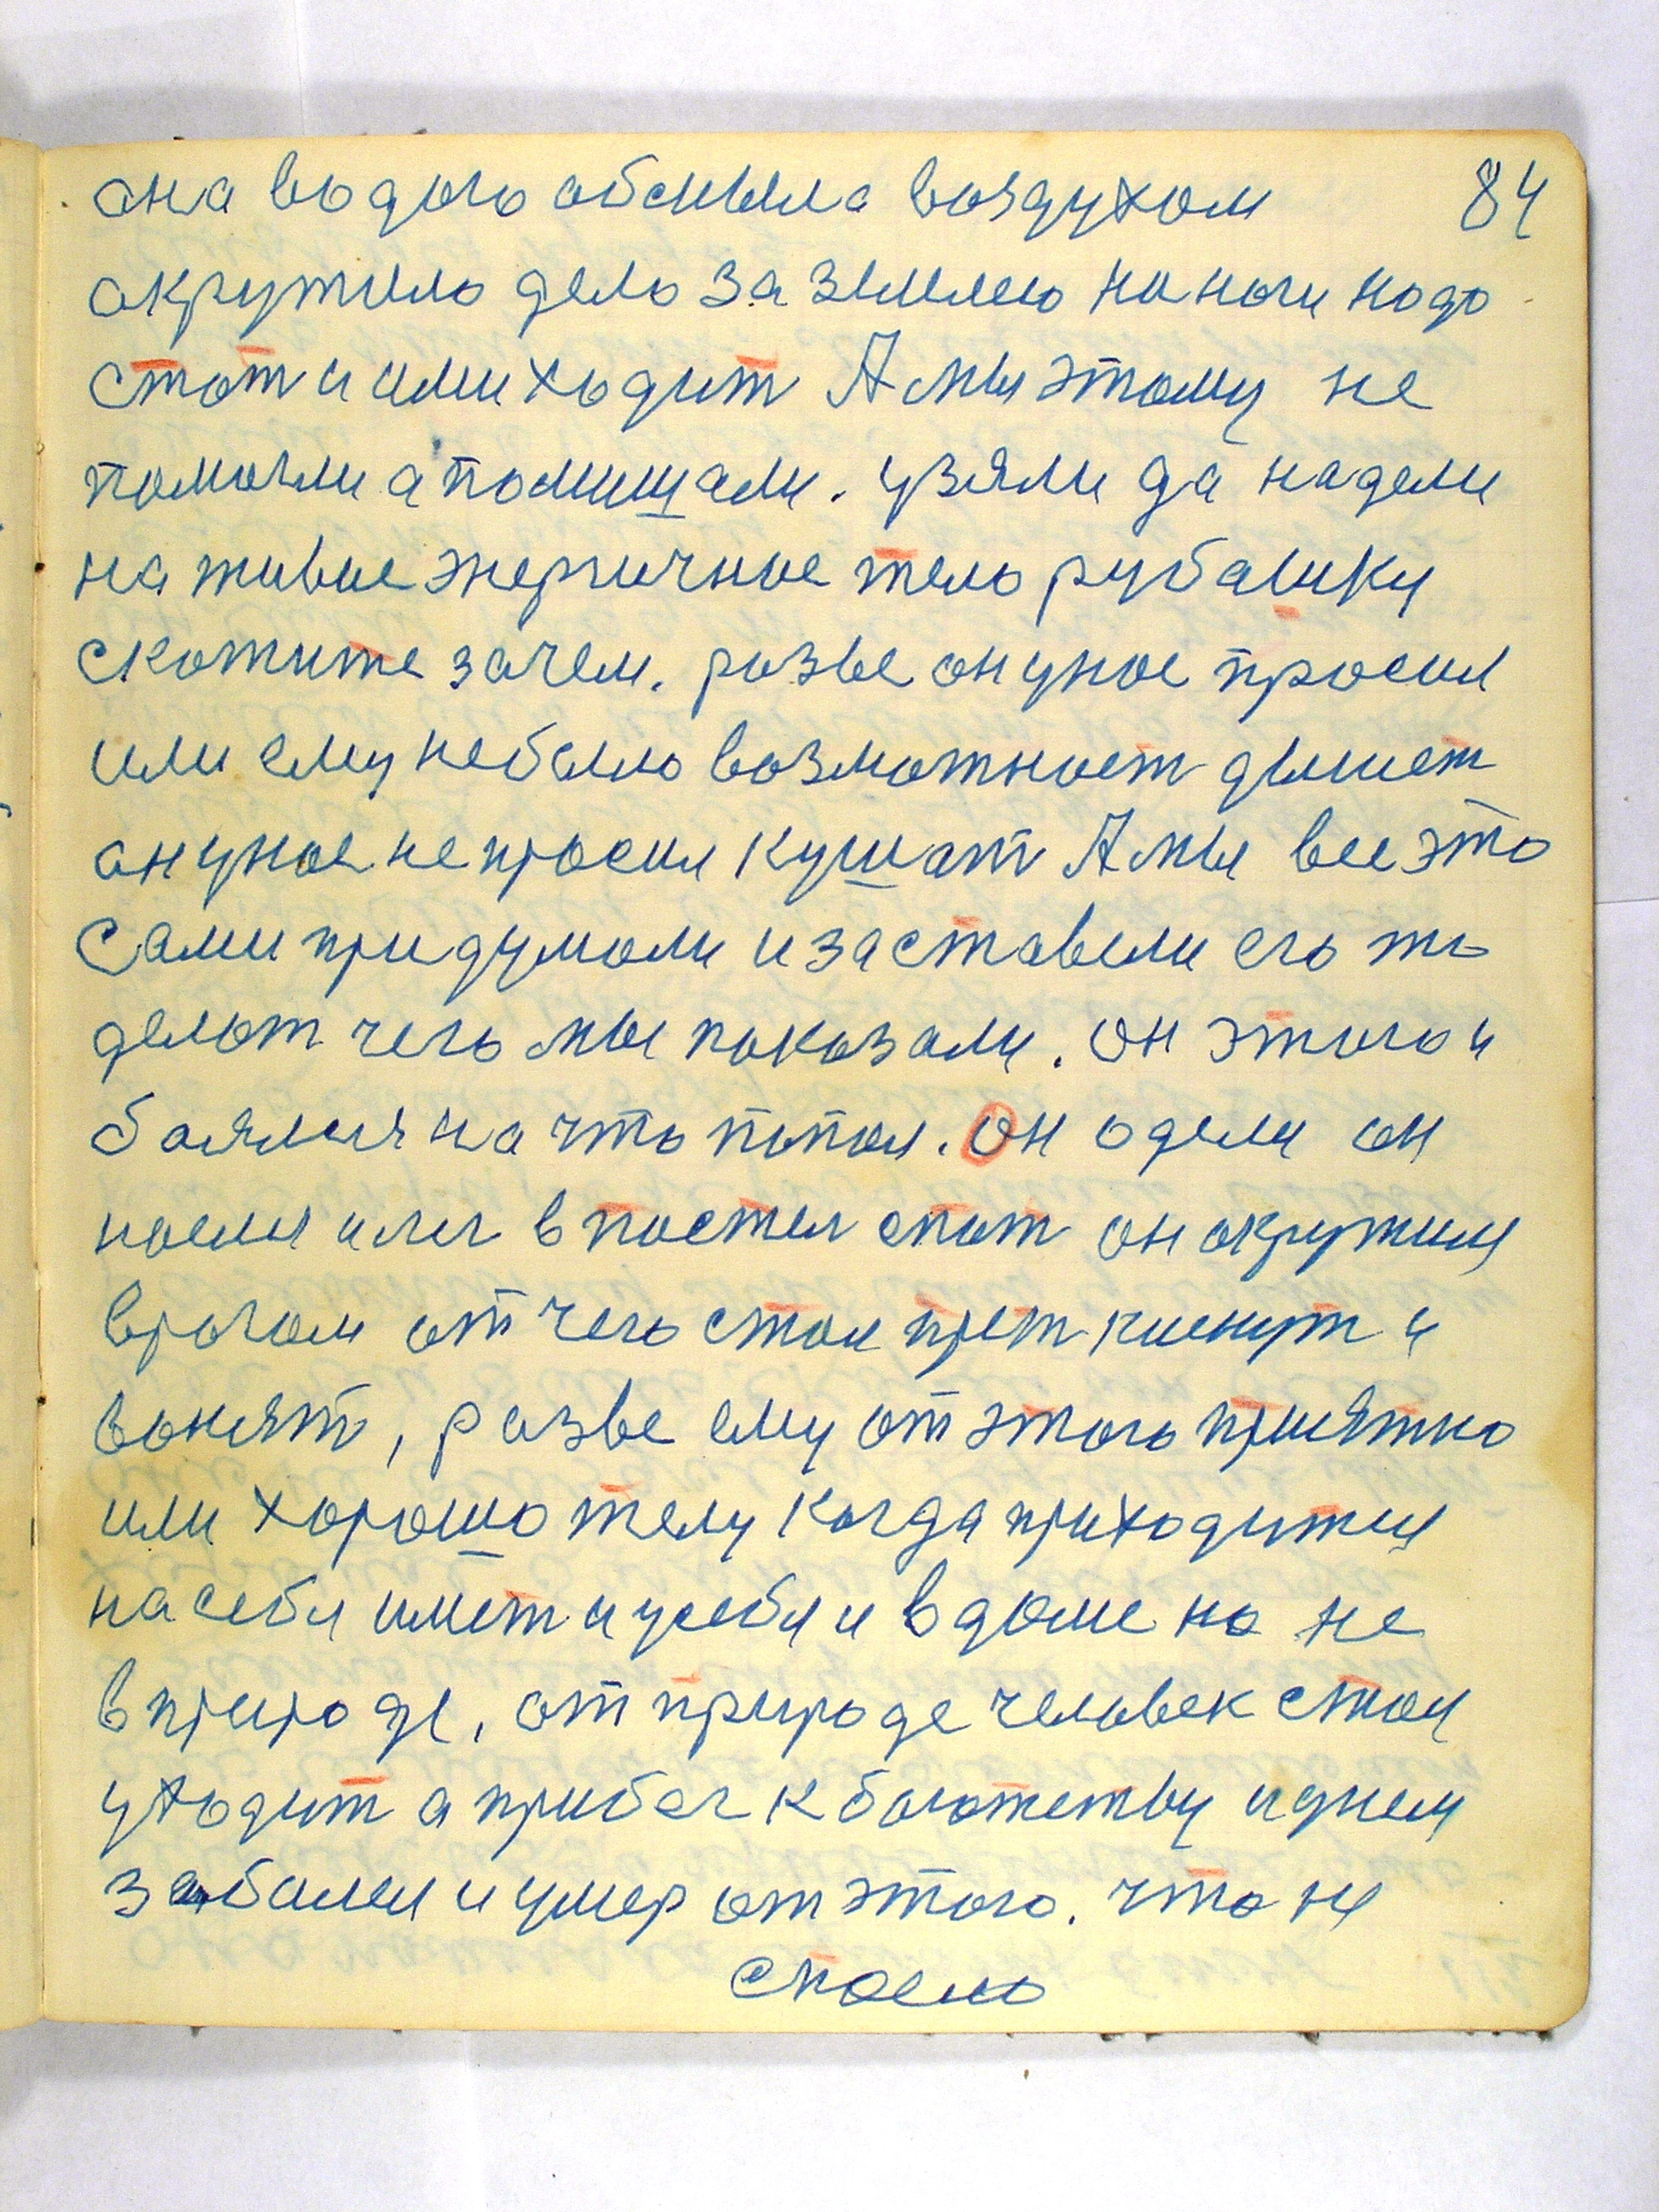 она водою обсмыла воздухом 84
окружило дело за землею на ноги надо
стат и ими ходит А мы этому не
помогли а помишали. узяли да надели
на живое энергичное тело рубашку
скажите зачем. разве он у нас просил
или ему небыло возможност дышет
он у нас не просил кушат А мы все это
сами придумали и заставели его то
делат чего мы показали. он этого и
боялся на что попал. Он одели он
наелся и лег в постел спат он окружил
врагом от чего стал прет киснут и
вонят, разве ему от этого приятно
или хорошо телу когда приходится
на себя имет и у себя и в доме но не
в природе, от природе человек стал
уходит а прибег к богатству и днем
заболел и умер от этого. что не
спасло